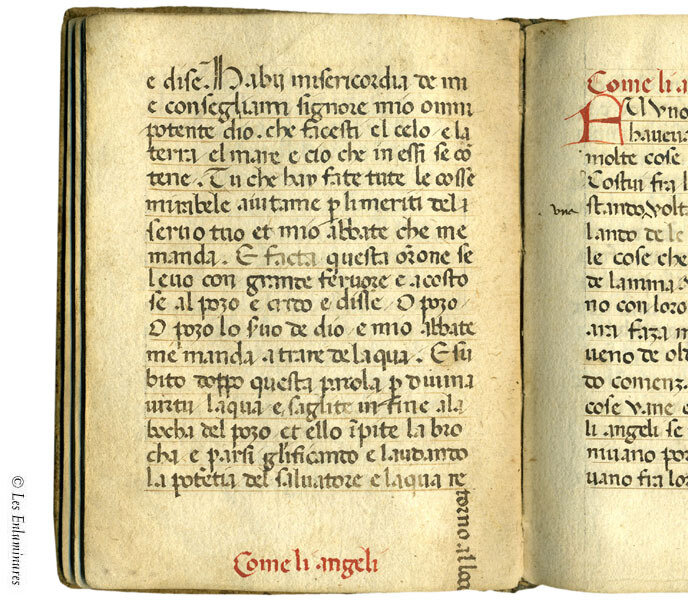 e dise. Habii misericordia de mi
e consegliami signore mio omni
potente dio. che facesti el celo e la
terra el mare e cio che in essi se cō
tene. Tu che hay fate tute le cosse
mirabele aiutame p li meriti del
seruo tuo et mio abbate che me
manda. E facta questa orōne se
leuo con grande feruore e acosto
se al pozo e crido e disse O pozo
O pozo lo suo de dio e mio abbate
me manda a trare de laqua. E su
bito doppo questa parola p diuina
uirtu laqua e saglite in fine ala
bocha del pozo et ello īpite la bro
cha e parsi glificando e laudando
la potētia del saluatore e laqua re
torno al loco
Come li angeli
Come li an
EL uno
haueua
molte cose
Costui fra l
stando uolt
vna
lando de le
le cose che
de lamma
no con loro
ara faza m
ueno de ol
to comenz
cose vane e
li angeli se
niuano por
uano fra lor
© Les Enluminures